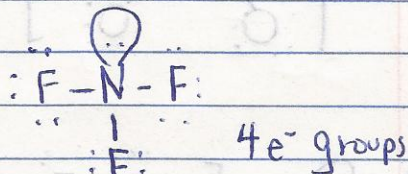 :F-N-F:
4e⁻ groups
:F: